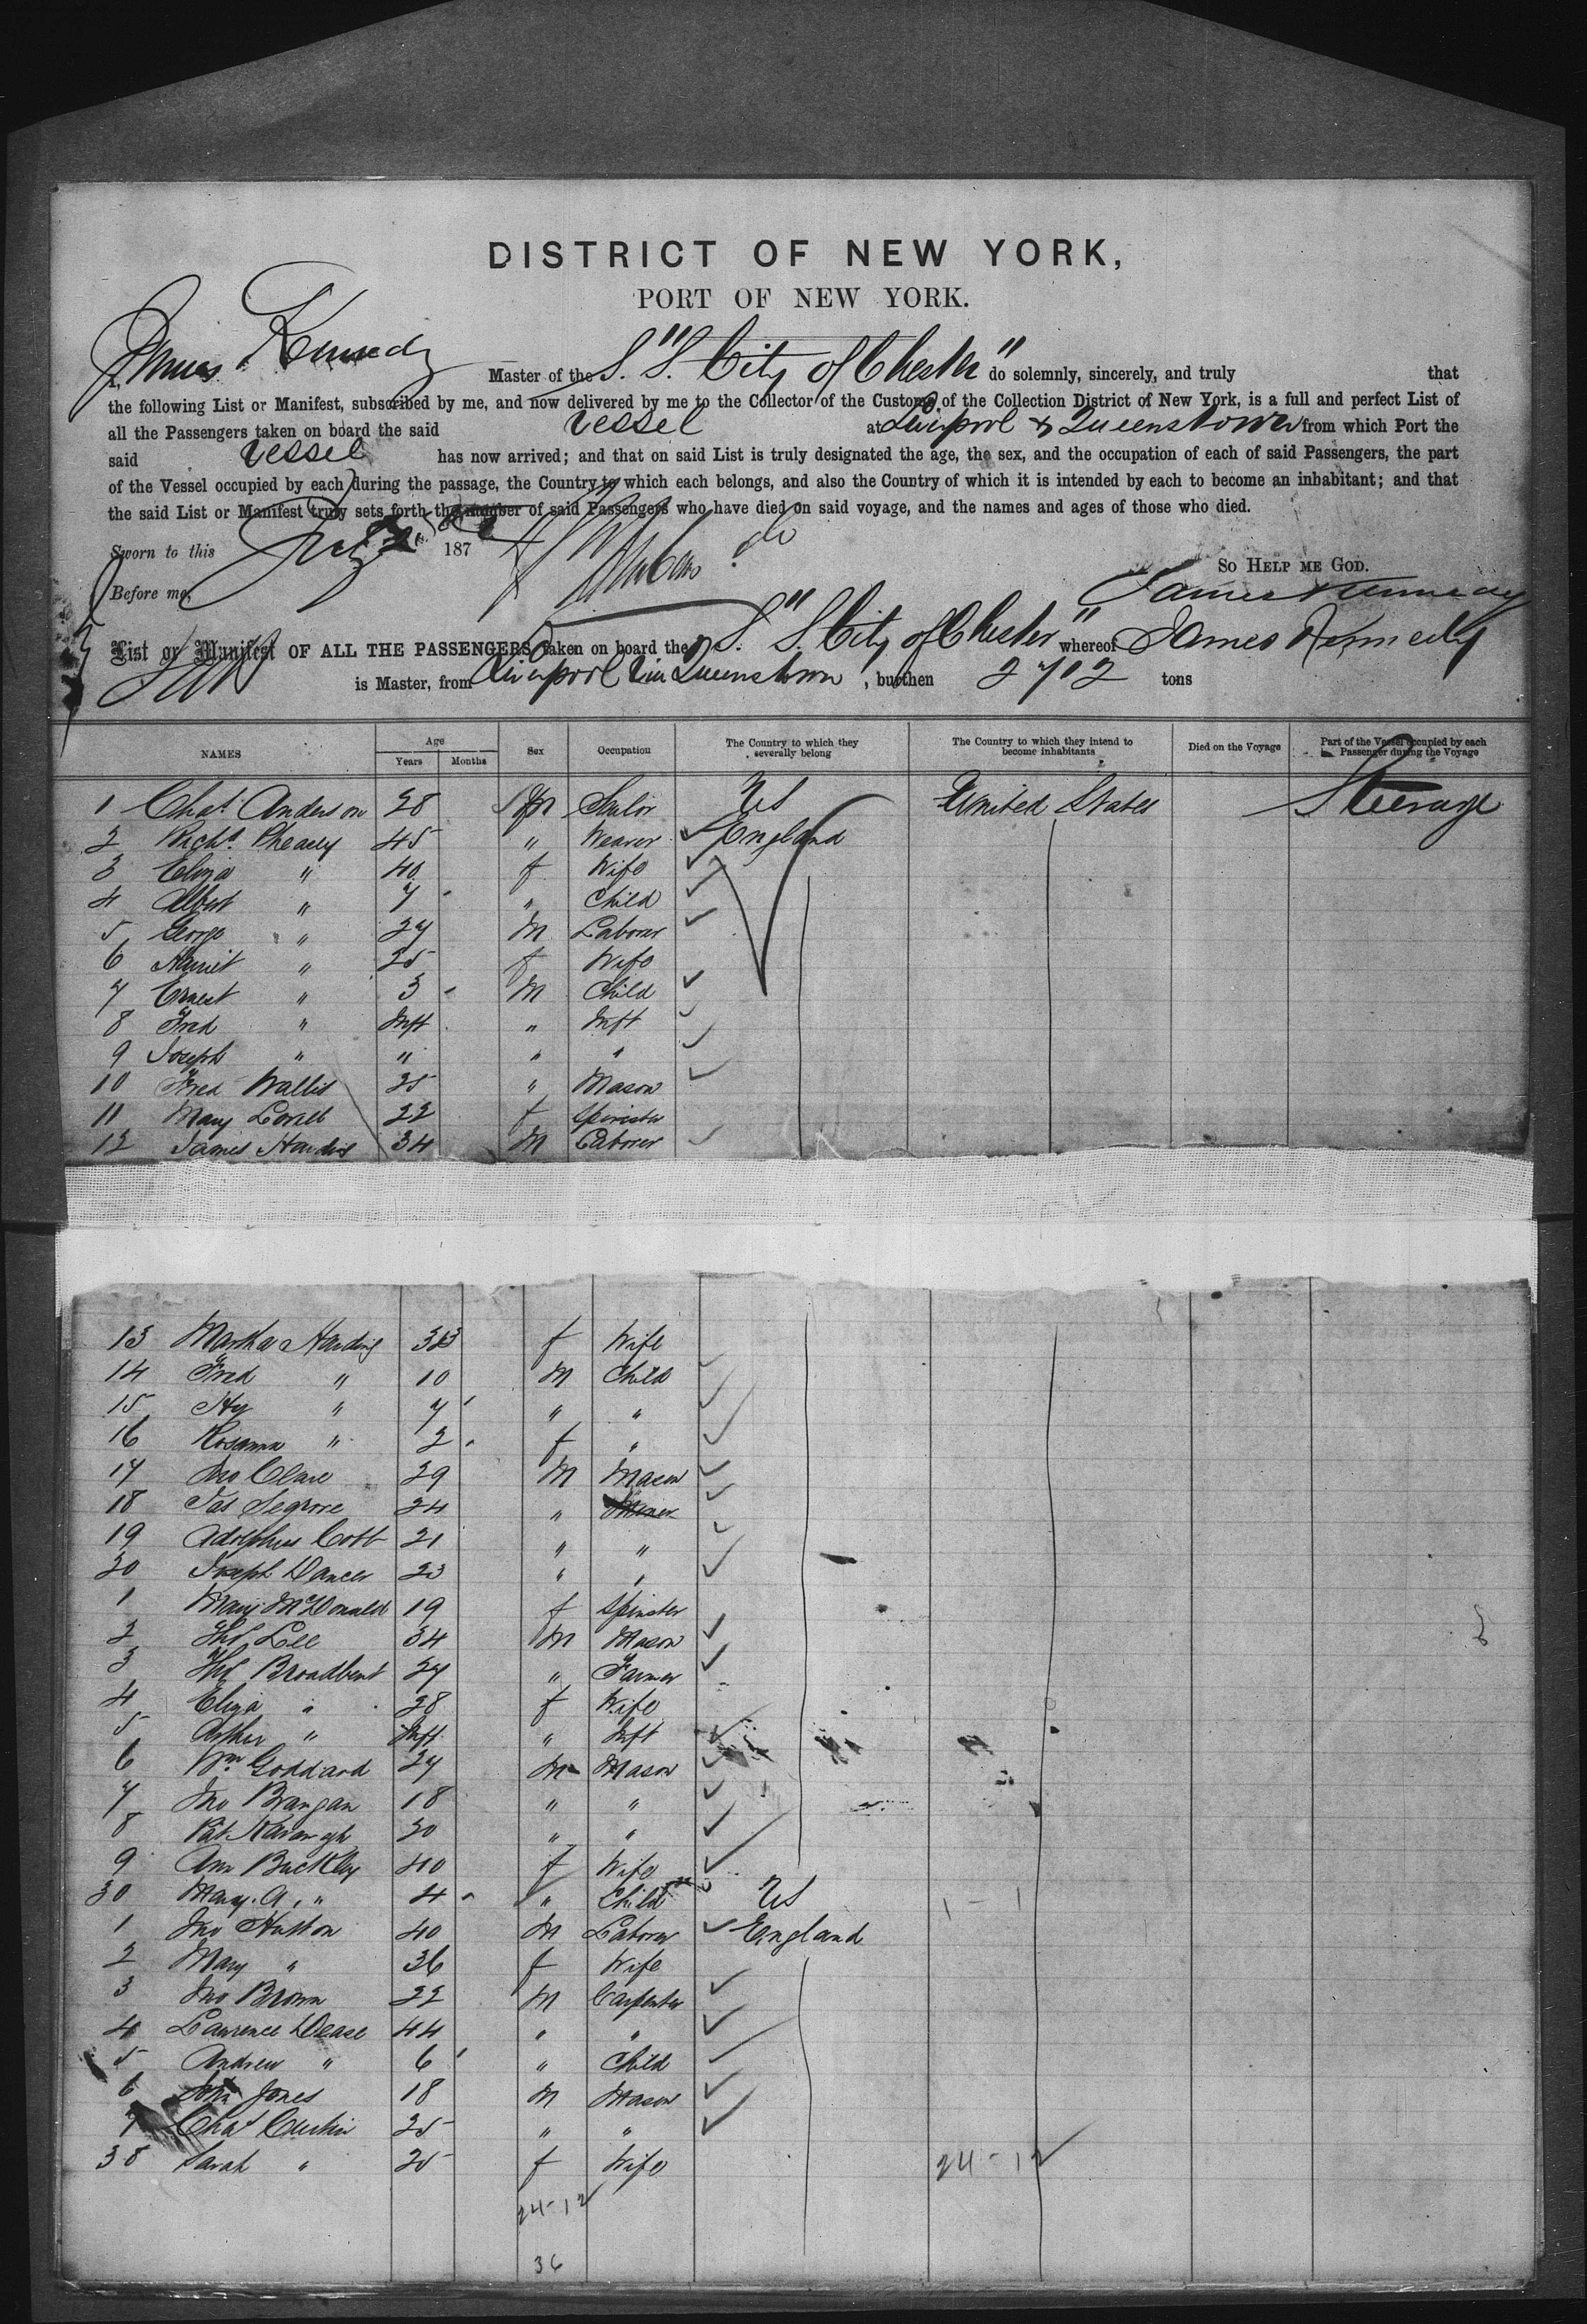 DISTRICT OF NEW YORK,
PORT OF NEW YORK.
I, James Kennedy Master of the S. "S. City of Chester" do solemnly, sincerely, and truly that
the following List or Manifest, subscribed by me, and now delivered by me to the Collector of the Customs of the Collection District of New York, is a full and perfect List of
all the Passengers taken on board the said Vessel at Liverpool & Queenstown from which Port the
said Vessel has now arrived; and that on said List is truly designated the age, the sex, and the occupation of each of said Passengers, the part
of the Vessel occupied by each during the passage, the Country to which each belongs, and also the Country of which it is intended by each to become an inhabitant; and that
the said List or Manifest truly sets forth the number of said Passengers who have died on said voyage, and the names and ages of those who died.
Sworn to this 187
So Help me God.
Before me, James Kennedy
List or Manifest OF ALL THE PASSENGERS taken on board the S. "S. City of Chester" whereof James Kennedy
is Master, from Liverpool via Queenstown, burthen 2702 tons
NAMES Age Years Months Sex Occupation The Country to which they severally belong The Country to which they intend to become inhabitants Died on the Voyage Part of the Vessel occupied by each Passenger during the Voyage
1 Chas. Anderson 28 M Sailor US United States Steerage
2 Richd. 45 " Weaver England
3 Eliza " 40 f Wife
4 Albert " 7 " Child
5 George " 27 M Laborer
6 Harriet " 25 f Wife
7 Ernest " 3 M Child
8 Fred " Inft " Inft
9 Joseph " " " "
10 Fred Wallis 25 " Mason
11 Mary Lovell 22 f Spinster
12 James Harding 34 M Laborer
13 Martha Harding 33 f Wife
14 Fred " 10 M Child
15 Hy " 7 " "
16 Rosanna " 2 f "
17 Jno Clare 29 M Mason
18 Jas Segrove 24 " Miner
19 Adolphus Cobb 21 " "
20 Joseph Dancer 23 " "
1 Mary McDonald 19 f Spinster
2 Thos Lee 34 M Mason
3 Thos Broadbent 27 " Farmer
4 Eliza " 28 f Wife
5 Arthur " Inft " Inft
6 Wm Goddard 27 M Mason
7 Jno Brangan 18 " "
8 Pat Kavanagh 20 " "
9 Ann Buckley 40 f Wife
30 Mary. A. " 4 " Child US 1 - 1
1 Jno Hutton 40 M Laborer England
2 Mary " 36 f Wife
3 Jno Brown 22 M Carpenter
4 Lawrence Dease 44 " "
5 Andrew " 6 " Child
6 John Jones 18 M Mason
7 Chas 25 " "
38 Sarah " 25 f Wife 24-12
24-12
36